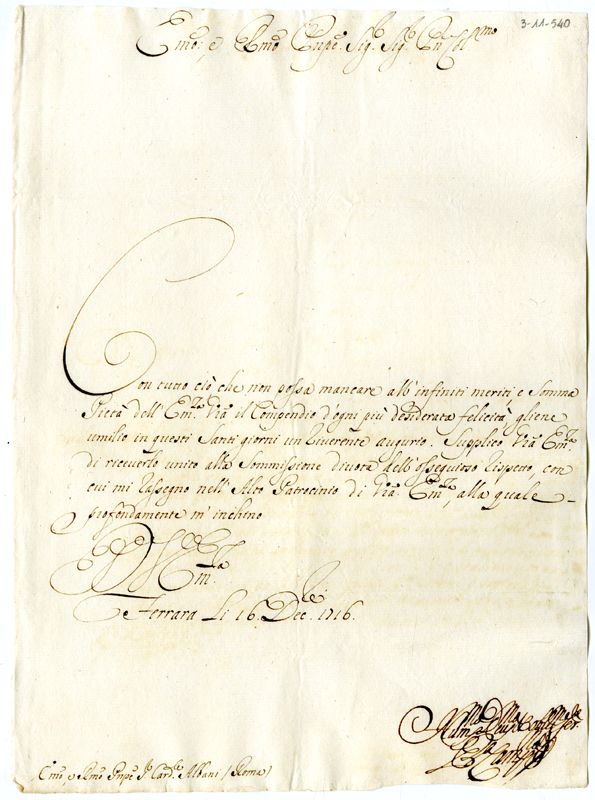 3-11-540
Emo: e Rmo Pnpe. Sig. Sig. Pn Colmo
Con tutto ciò che non possa mancare all'infiniti meriti, e Somma
Pietà dell'Emza Vra il Compendio d'ogni più desiderata felicità, gliene
umilio in questi Santi giorni un riverente augurio. Supplico Vra Emza
di riceverlo unito alla Sommissione divota dell'ossequioso rispetto, con
cui mi rassegno nell'Alto Patrocinio di Vra Emza, alla quale
profondamente m'inchino
Ema
Ferrara Li 16. Dece. 1716.
Emo, e Rmo Pnpe Sr Cardle Albani (Roma)